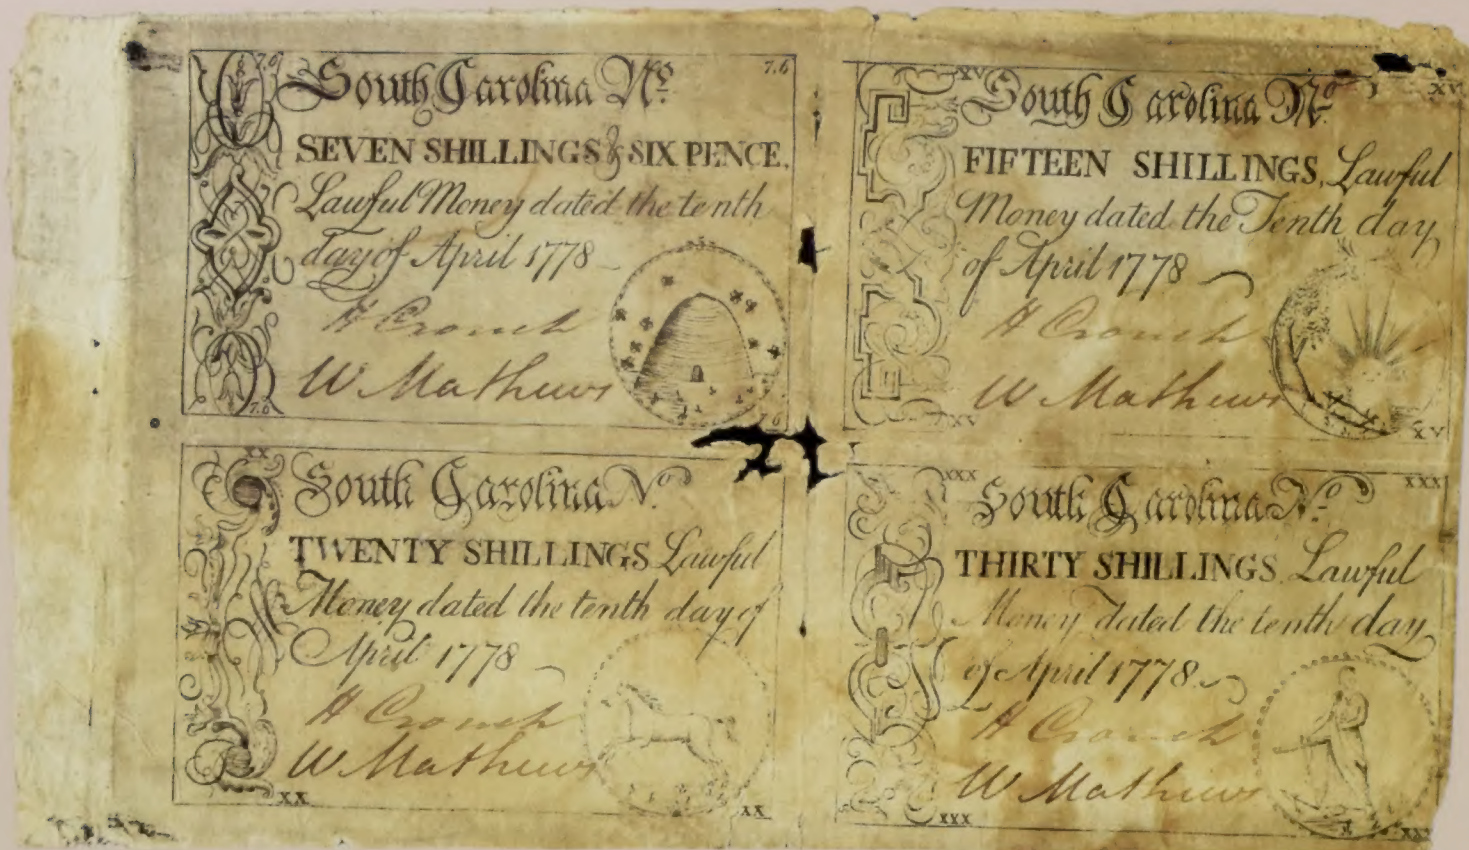 7.6 7.6
South Carolina No.
SEVEN SHILLINGS & SIX PENCE,
Lawful Money dated the tenth
day of April 1778
H Crouch
W Mathews
7.6 7.6
XV XV
South Carolina No.
FIFTEEN SHILLINGS, Lawful
Money dated the Tenth day
of April 1778
H Crouch
W Mathews
XV XV
XX
South Carolina No.
TWENTY SHILLINGS Lawful
Money dated the tenth day of
April 1778
H Crouch
W Mathews
XX XX
XXX XXX
South Carolina No.
THIRTY SHILLINGS Lawful
Money dated the tenth day
of April 1778
H Crouch
W Mathews
XXX XXX